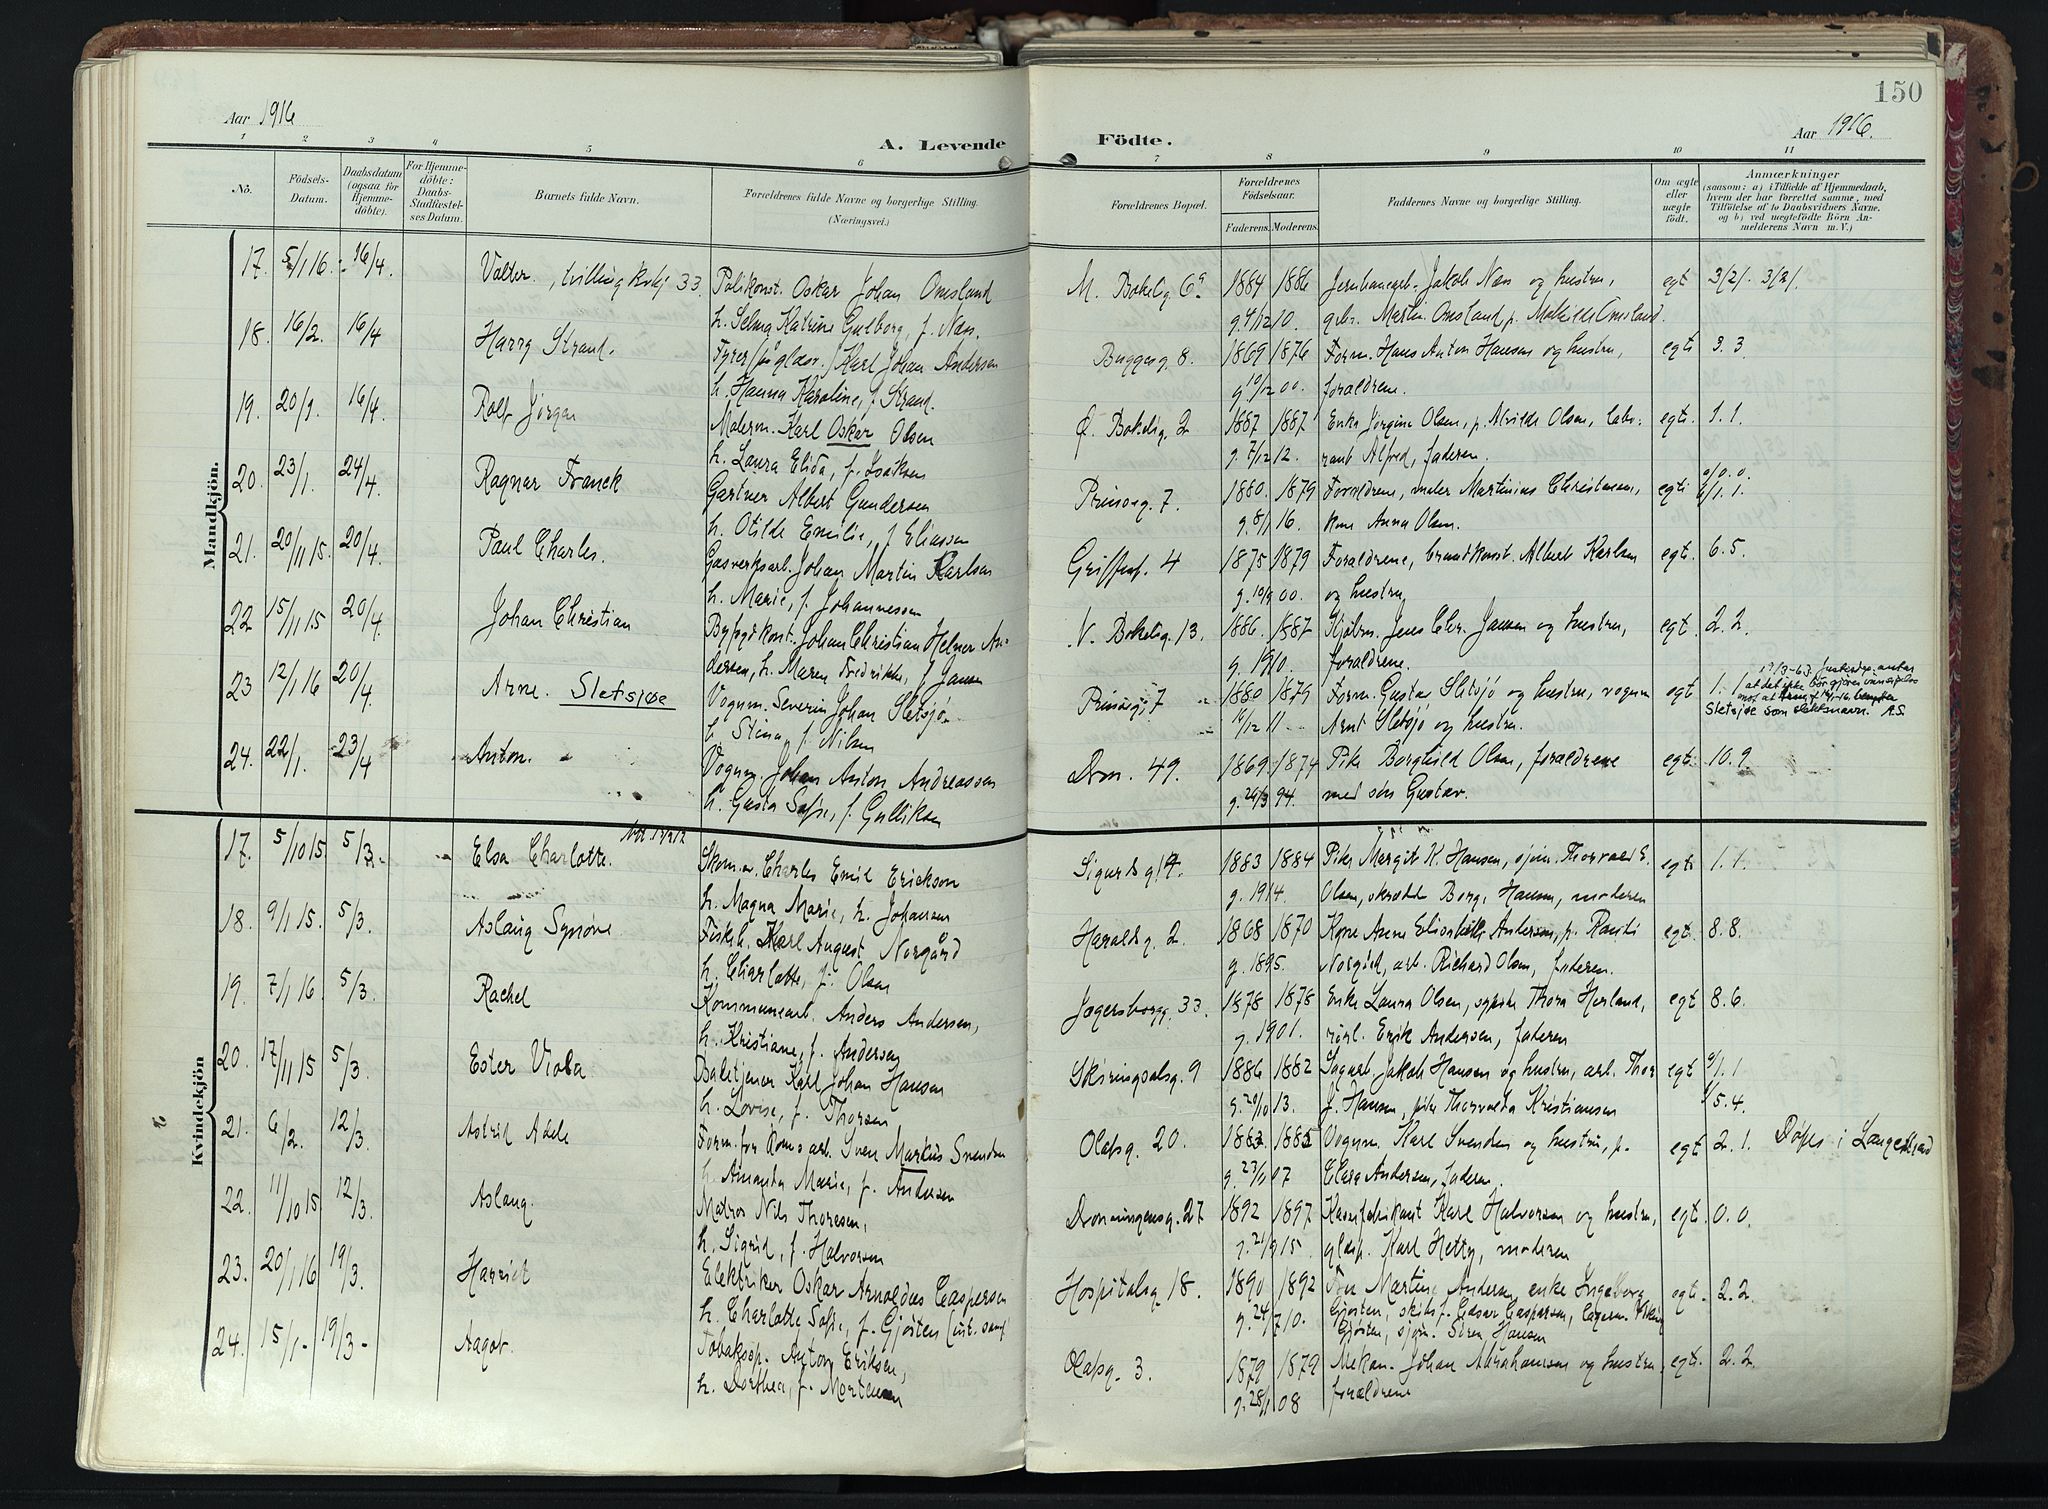 150
Aar 1916
A. Levende
Födte.
Aar 1916.
1 2 3 4 5 6 7 8 9 10 11
No.
Födsels-Datum.
Daabsdatum (ogsaa for Hjemme-döbte).
For Hjemme-döbte: Daabs-Stadfæstel-ses Datum.
Barnets fulde Navn.
Forældrenes fulde Navne og borgerlige Stilling. (Næringsvei.)
Forældrenes Bopæl.
Forældrenes Födselsaar.
Faderens. Moderens.
Faddernes Navne og borgerlige Stilling.
Om ægte eller uægte födt.
Anmærkninger
(saasom: a) i Tilfælde af Hjemmedaab, hvem der har forrettet samme, med Tilföielse af to Daabsvidners Navne, og b) ved uægtefödte Börn An-melderens Navn m. V.)
Mandkjön.
17. 5/1 16. 16/4. Valter, tvilling kvkj 33. Polikonst. Oskar Johan Omsland M. Bakelig. 6a 1884 1886 Jernbanearb. Jakob Næs og hustru, egt 3/2/. 3/2/.
h. Selma Katrine Gulborg, f. Næs. g. 4/12 10. gbr. Martin Omsland, p. Mathilde Omsland.
18. 16/2. 16/4 Harry Strand. Fyrer (på glasv.) Karl Johan Andersen Buggesg. 8. 1869 1876 Form. Hans Anton Hansen og hustru, egte 3.3.
h. Hanna Karoline, f. Strand. g. 10/12 00. forældrene.
19. 20/1. 16/4. Rolf Jørgen Malerm. Karl Oskar Olsen Ø. Bakelig. 2 1887 1887 Enke Jørgine Olsen, p. Alvilde Olsen, labo- egt. 1.1.
h. Laura Elida, f. Isaksen g. 7/12 12. rant Alfred, faderen.
20. 23/1. 24/4. Ragnar Franck Gartner Albert Gundersen Prinseg. 7. 1880. 1879 Forældrene, maler Martinius Christensen, egte 0/0.0. 1/1.1.
h. Otilde Emilie, f. Eliassen g. 8/1 16. kone Anna Olsen.
21. 20/11 15. 20/4. Paul Charles. Gasverksarb. Johan Martin Karlsen Griffenf. 4 1875 1879 Forældrene, brandkonst. Albert Karlsen egt. 6.5.
h. Marie, f. Johannessen g. 10/9 00. og hustru
22 15/11 15 20/4. Johan Christian Byfogdkonst. Johan Christian Helmer An- V. Bakelig. 13. 1886. 1887 Kjøbm. Jens Chr. Jansen og hustru, egt. 2.2.
dersen, h. Maren Fredrikke, f. Jansen g. 1910. forældrene.
23 12/1 16 20/4. Arne. Sletsjøe Vognm. Severin Johan Sletsjø. Prinseg. 7 1880 1879 Form. Gustav Sletsjö og hustru, vognm egt 1.1
h. Stina, f. Nilsen 16/12 11 Arnt Sletsjö og hustru.
17/3-63 Justisdep. antar at det ikke bør gjøres innsigelse mot at Arne f. 12/1-16 benytter Sletsjøe som slektsnavn. A.S.
24. 22/1. 23/4 Anton. Vognm. Johan Anton Andreassen Dron. 49. 1869. 1874 Pike Borghild Olsen, forældrene egt. 10.9.
h. Gusta Sofie, f. Gulliksen g. 24/3 94. med søn Gustav.
Kvindekjön
17. 5/10 15 5/3. Elsa Charlotte. Skom.sv. Charles Emil Erickson Sigurdsg. 14. 1883 1884 Pike Margit K. Hansen, sjøm. Thorvald E. egt 1.1.
h. Magna Marie, h. Johansen g. 1914. Olsen, skrædder Borg. Hansen, moderen
18. 9/1 15. 5/3. Aslaug Synöve Fiskeh. Karl August Norgård Haraldsg. 2. 1868 1870 Kone Anne Elisabeth Andersen, p. Randi egt. 8.8.
h. Charlotte, f. Olsen g. 1895. Norgård, arb. Richard Olsen, faderen.
19. 7/1 16. 5/3. Rachel Kommunearb. Anders Andersen, Jegersborgg. 33. 1878 1878 Enke Laura Olsen, sypike Thora Herland, egt 8.6.
h. Kristiane, f. Andersen g. 1901. rørl. Erik Andersen, faderen
20. 17/11 15 5/3. Ester Viola Baltjener Karl Johan Hansen Skiringsalsg. 9 1886 1882 Sagarb. Jakob Hansen og hustru, arb. Thor egt 0/1.1
h. Lovise, f. Thorsen g. 20/10 13. J. Hansen, pike Thorvalda Kristiansen 1/5.4.
21. 6/2. 12/3. Astrid Adele Form. for kom.s arb. Sven Markus Svendsen Olafsg. 20. 1883 1885 Vognm. Karl Svendsen og hustru, p. egt 2.1. Døpt i Langestrand
h. Amanda Marie, f. Andersen g. 23/11 07 Clara Andersen, faderen.
22. 11/10 15 12/3. Aslaug. Matros Nils Thoresen, Dronningensg. 27 1892 1897 Kassefabrikant Karl Halvorsen og hustru, egt. 0.0.
h. Sigrid, f. Halvorsen g. 21/9 15. glasp. Karl Hetty, moderen
23. 20/1 16 19/3. Harriet Elektriker Oskar Arnoldus Caspersen Hospitalsg. 18. 1890 1892 Fru Martine Andersen, enke Ingeborg egt. 2.2.
h. Charlotte Sofie, f. Gjøsten g. 24/7 10. Gjøsten, skibsf. Cæsar Caspersen, lagerm. Viking Gjøsten, sjøm. Sören Hansen
24. 15/1- 19/3- Aagot. Tobakssp. Anton Eriksen, Olafsg. 3. 1879 1879 Mekan. Johan Abrahamsen og hustru. egt. 2.2.
h. Dorthea, f. Mortensen g. 28/1 08 forældrene